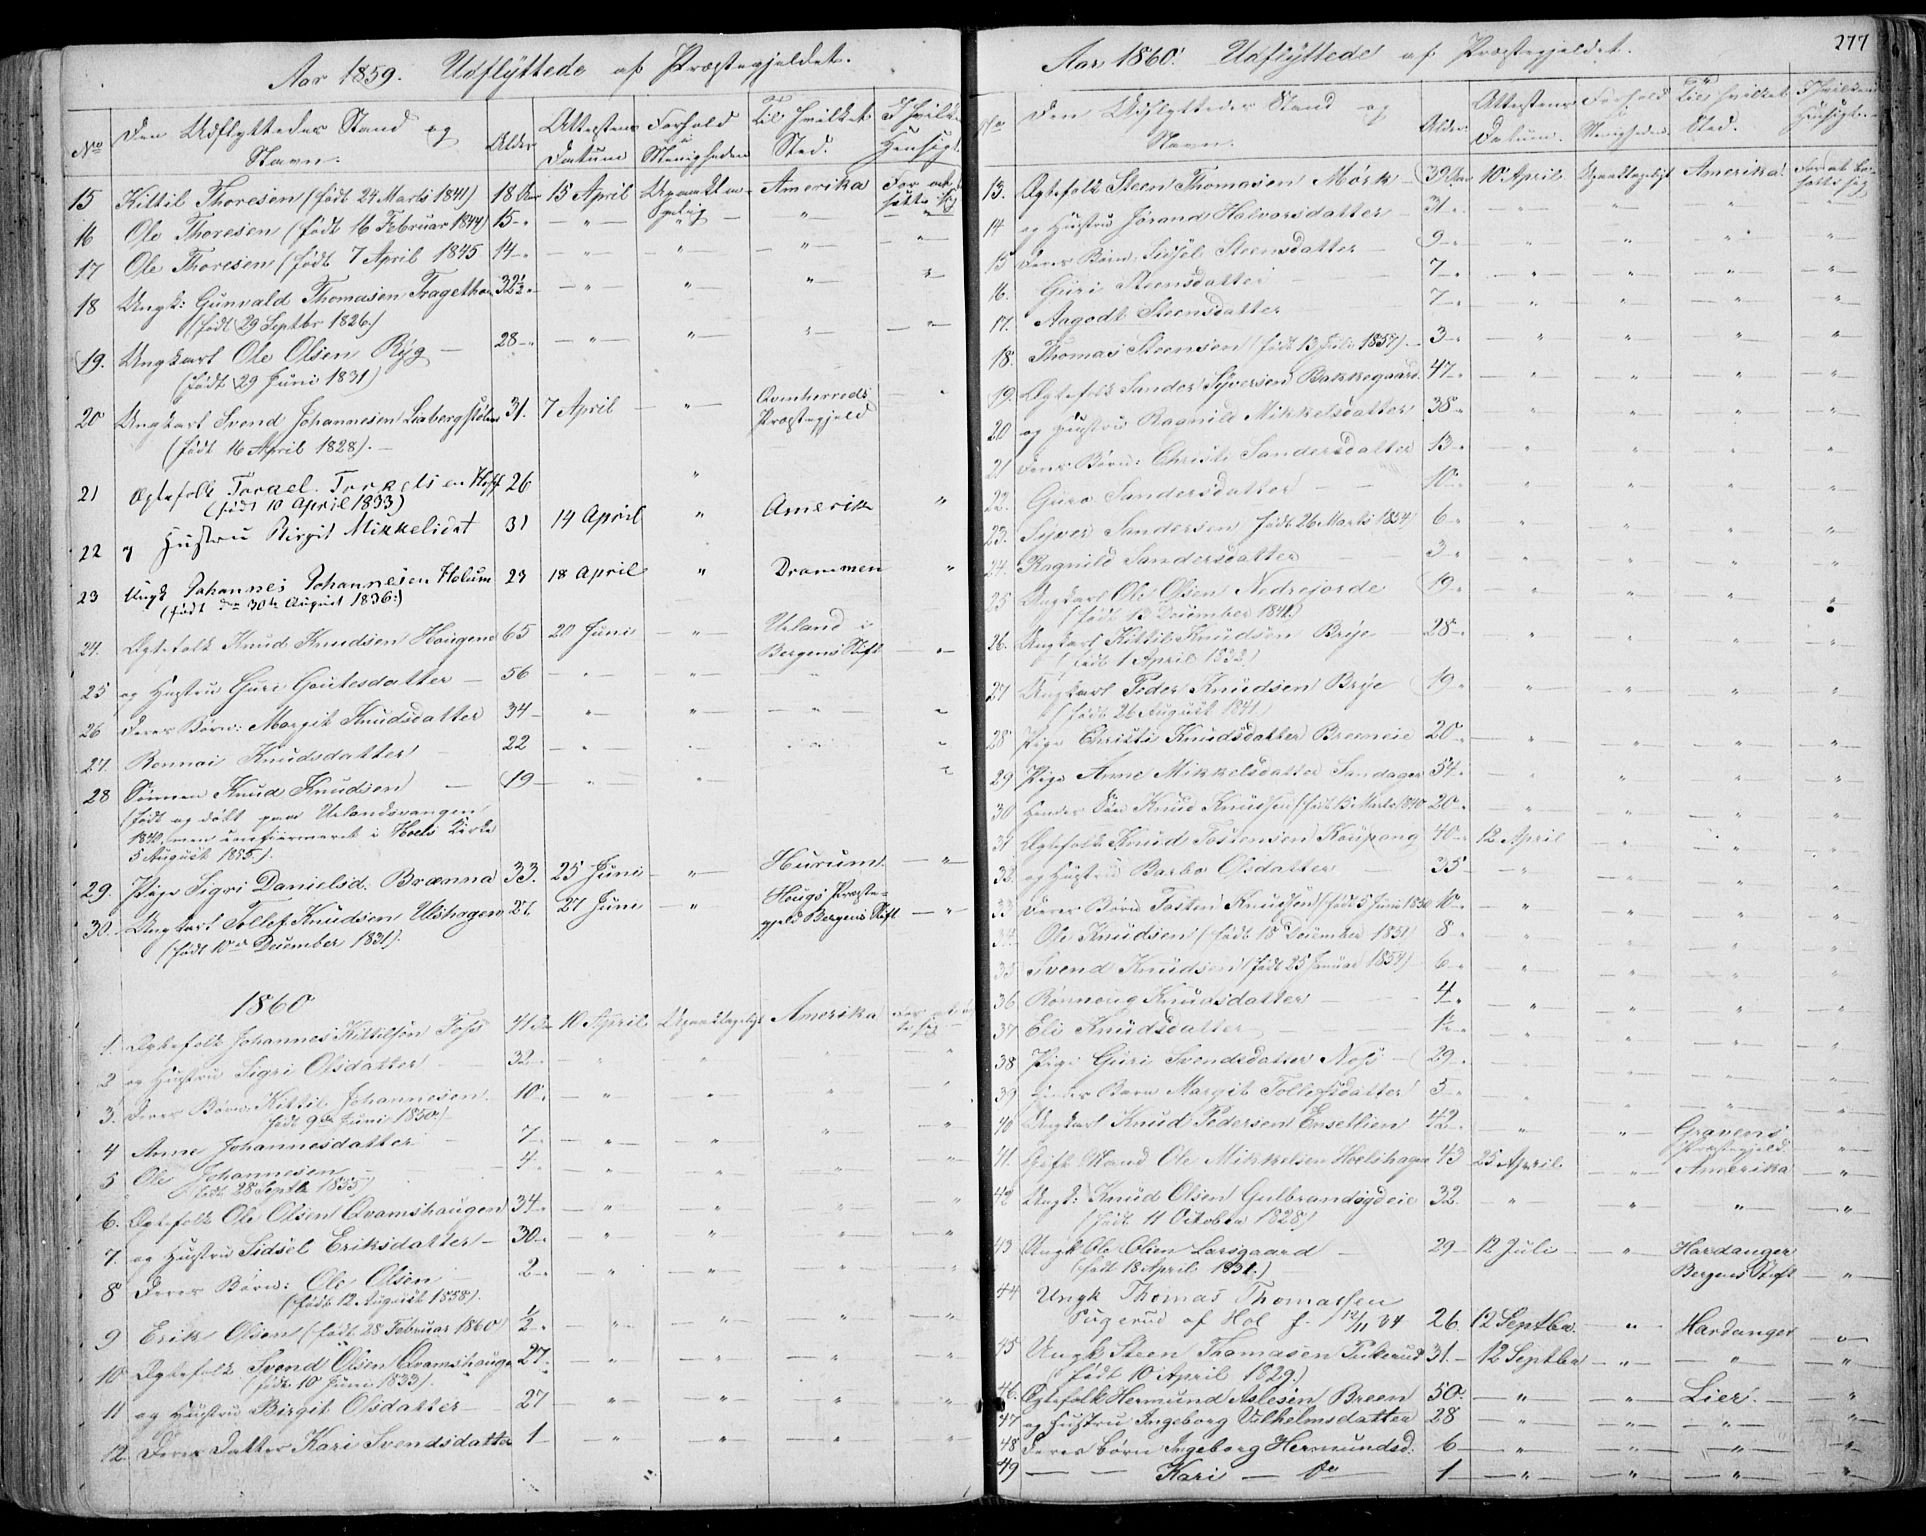 Aar 1859. Udflyttede af Præstegjeldet.
No Den Udflyttedes Stand og Navn. Alder Attestens Datum Forhold i Menigheden Til hvilket Sted. I hvilken Hensigt
15 Kittil Thoresen (født 24 Marts 1841) 18 Aar 15 April Upaaklageligt Amerika For at sætte sig
16 Ole Thoresen (født 16 Februar 1844) 15 " " " " "
17 Ole Thoresen (født 7 April 1845 14 " " " " "
18 Ungk: Gunvald Thomasen Tragethon 32½ " " " " "
(født 29 Septbr 1826)
19. Ungkarl Ole Olsen Ryg 28 " " " " "
(født 29 Juni 1831)
20 Ungkarl Svend Johannesen Laabergstølen 31. 7 April " Qvinherreds Præstegjeld "
(født 16 April 1828).
21 Ægtefolk Torgel Torgelsen Hoff 26 "
(født 10 April 1833)
22 og Hustru Birgit Mikkelsdat 31 14 April " Amerik "
23 Ungk Johannes Johannesen Holum 23 18 April " Drammen "
(født den 30te August 1836.)
24. Ægtefolk Knud Knudsen Haugene 65 20 Juni " Urland i Bergens Stift "
25 og Hustru Guri Goutesdatter 56 " " "
26 Deres Børn: Margit Knudsdatter 34 " " " "
27. Ronnoi Knudsdatter 22 " " "
28 Sønnen Knud Knudsen 19 " " "
(født og døbt paa Urlandsvangen
1840, men confirmeret i Hoels Kirke
5 August 1855.)
29. Pige Sigri Danielsd. Brænna 33. 25 Juni " Hurum. "
30. Ungkarl Tollef Knudsen Ulshagen 27 27 Juni " Hougs Præstegjeld Bergens Stift "
(født 10de December 1831).
1860
1. Ægtefolk Johannes Kittilsøn Foss 41 Aar 10 April Upaaklageligt Amerika
2 og Hustru Sigri Olsdatter 32 " " " "
3. Deres Børn: Kittil Johannesen 10 " " " "
født 9de Juni 1850)
4 Anne Johannesdatter 7 " " " "
5 Ole Johannesen 4 " " " "
født 28 Septb 1855)
6. Ægtefolk Ole Olsen Qvamshaugen 34 " " " "
7. og Hustru Sidsel Eriksdatter 30 " " " "
8 Deres Børn: Ole Olsen 2 " " " "
(født 12 August 1858).
9 Erik Olsen (født 28 Februar 1860) ½ " " " "
10 Ægtefolk Svend Olsen Qvamshaugen 27 " " " "
(født 10 Juni 1833).
11 og Hustru Birgit Olsdatter 27 " " " "
12. Deres Datter Kari Svendsdatter 1 " " " "
277
Aar 1860. Udflyttede af Præstegjeldet.
No Den Udflyttedes Stand og Navn. Alder Attestens Datum. Forhold i Menigheden Til hvilket Sted. I hvilken Hensigt
13. Ægtefolk Steen Thomasen Mørk 39 Aar 10 April Upaaklageligt Amerika For at bosætte sig
14 og Hustru Jørand Halvorsdatter 31 " " " "
15 Deres Børn: Sidsel Steensdatter 9 " " " "
16. Guri Steensdatter 7 " " " "
17. Aagodt Steensdatter 7 " " " "
18. Thomas Steensen (født 13 Juli 1857) 3 " " " "
19. Ægtefolk Sander Syversen Bakkegaard 47 " " " "
20 og Hustru Ragnild Mikkelsdatter 38 " " " "
21 Deres Børn: Christi Sandersdatter 13 " " " "
22. Guro Sandersdatter 10 " " " "
23. Syver Sandersen født 26 Marts 1854) 6 " " " "
24. Ragnild Sandersdatter 3 " " " "
25 Ungkarl Ole Olsen Nedrejorde 19 " " " "
(født 13 December 1841)
26. Ungkarl Kittil Knudsen Brye 28 " " " "
(født 1 April 1832)
27 Ungkarl Peder Knudsen Brye 19 " " " "
(født 26 August 1841)
28 Pige Christi Knudsdatter Bremeie 20 " " " "
29 Pige Anne Mikkelsdatter Sandager 54 " " " "
30 Hendes Søn Knud Knudsen (født 15 Marts 1840 20 " " " "
31 Ægtefolk Knud Tostensen Kaupang 40 12 April " " "
32. og Hustru Barbo Olsdatter 35 " " " "
33 Deres Børn Tosten Knudsen (født 5 Juni 1850 10 " " " "
34. Ole Knudsen (født 18 December 1851) 8 " " " "
35 Svend Knudsen (født 25 Januar 1854) 6 " " " "
36 Rønnoug Knudsdatter 4 " " " "
37 Eli Knudsdatter ½ " " " "
38 Pige Guri Svendsdatter Noss 29 " " " "
39 Hendes Barn Margit Tollefsdatter 3 " " " "
40 Ungkarl Knud Pedersen Ensetlien 42 " " Gravens Præstegjeld "
41. Gift Mand Ole Mikkelsen Hoelshagen 43 25 April " Amerika "
42 Ungk: Knud Olsen Gulbrandsgdeie 32 " " " "
(født 11 October 1828)
43 Ungk Ole Olsen Larsgaard 29 12 Juli " Hardanger Bergens Stift "
(født 18 April 1831.)
44 Ungk Thomas Thomassen
Sugerud af Hol f. 12/11 34 26 12 Septber. " Hardanger "
45 Ungk Steen Thomasen Sukerud 31. 12 Septber " " "
(født 10 April 1829)
46. Ægtefolk Hermund Aslesen Breen 50. " " Lier. "
47 og Hustru Ingeborg Vilhelmsdatter 28 " " " "
48 Deres Børn Ingeborg Hermundsd. 6 " " " "
49 Kari do 1 " " " "